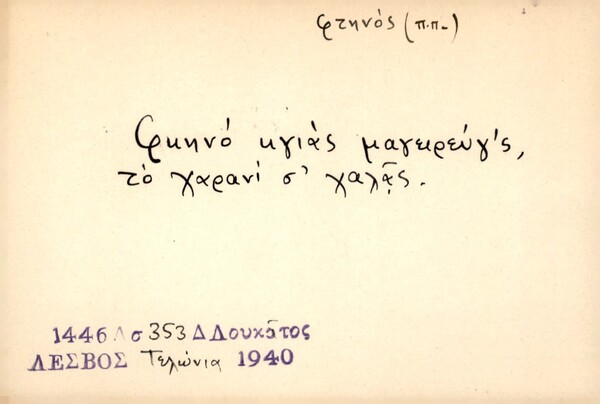 φτηνός (π.π.)
Φκηνό κγιάς μαγειρεύγ'ς,
τὸ χαρανί σ' χαλᾷς.
1446 Λ σ 353 Δ Δουκᾶτος
ΛΕΣΒΟΣ Τελώνια 1940